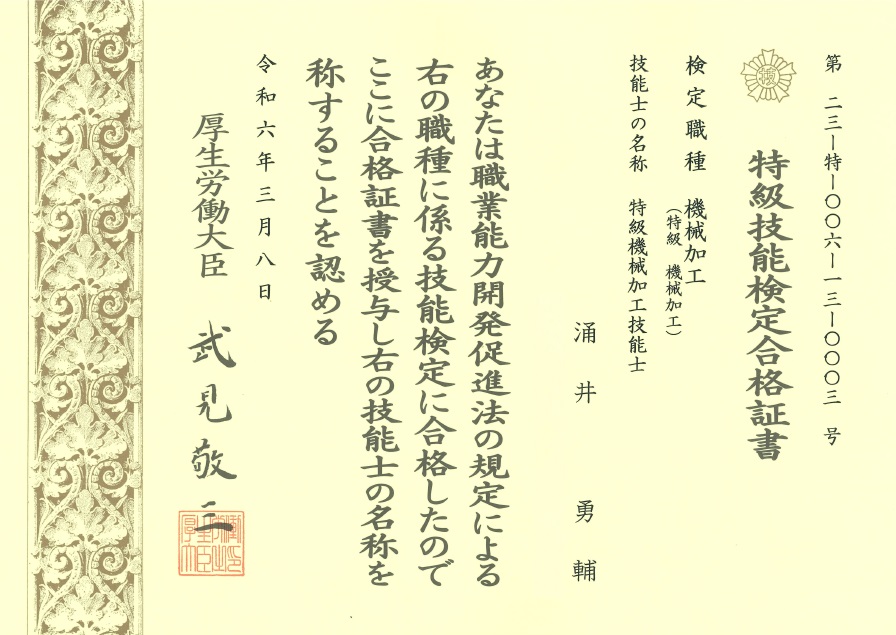 第 二三ー特ー〇〇六ー一三ー〇〇〇三 号
技
特級技能検定合格証書
検定職種 機械加工
(特級 機械加工)
技能士の名称 特級機械加工技能士
涌井 勇輔
あなたは職業能力開発促進法の規定による
右の職種に係る技能検定に合格したので
ここに合格証書を授与し右の技能士の名称を
称することを認める
令和六年三月八日
厚生労働大臣 武見敬三